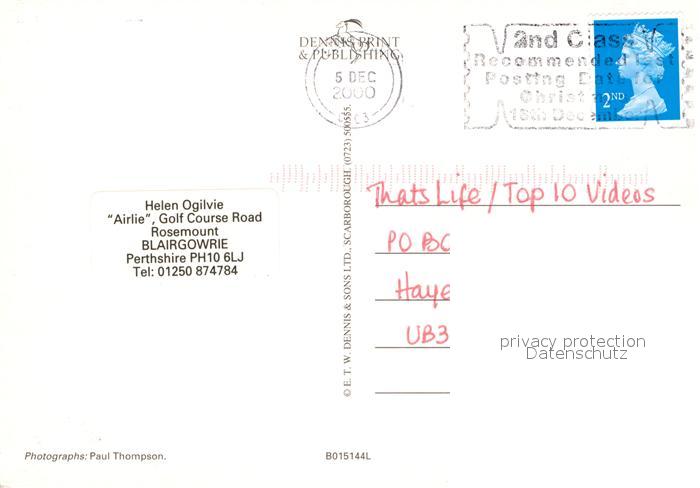 DENNIS PRINT
& PUBLISHING
5 DEC
2000
2nd Class
Recommended last
Posting Date for
Christmas
18th December
2ND
Thats Life / Top 10 Videos
PO BO
Haye
UB3
Helen Ogilvie
“Airlie”, Golf Course Road
Rosemount
BLAIRGOWRIE
Perthshire PH10 6LJ
Tel: 01250 874784
© E. T. W. DENNIS & SONS LTD., SCARBOROUGH. (0723) 500555.
privacy protection
Datenschutz
Photographs: Paul Thompson.
B015144L